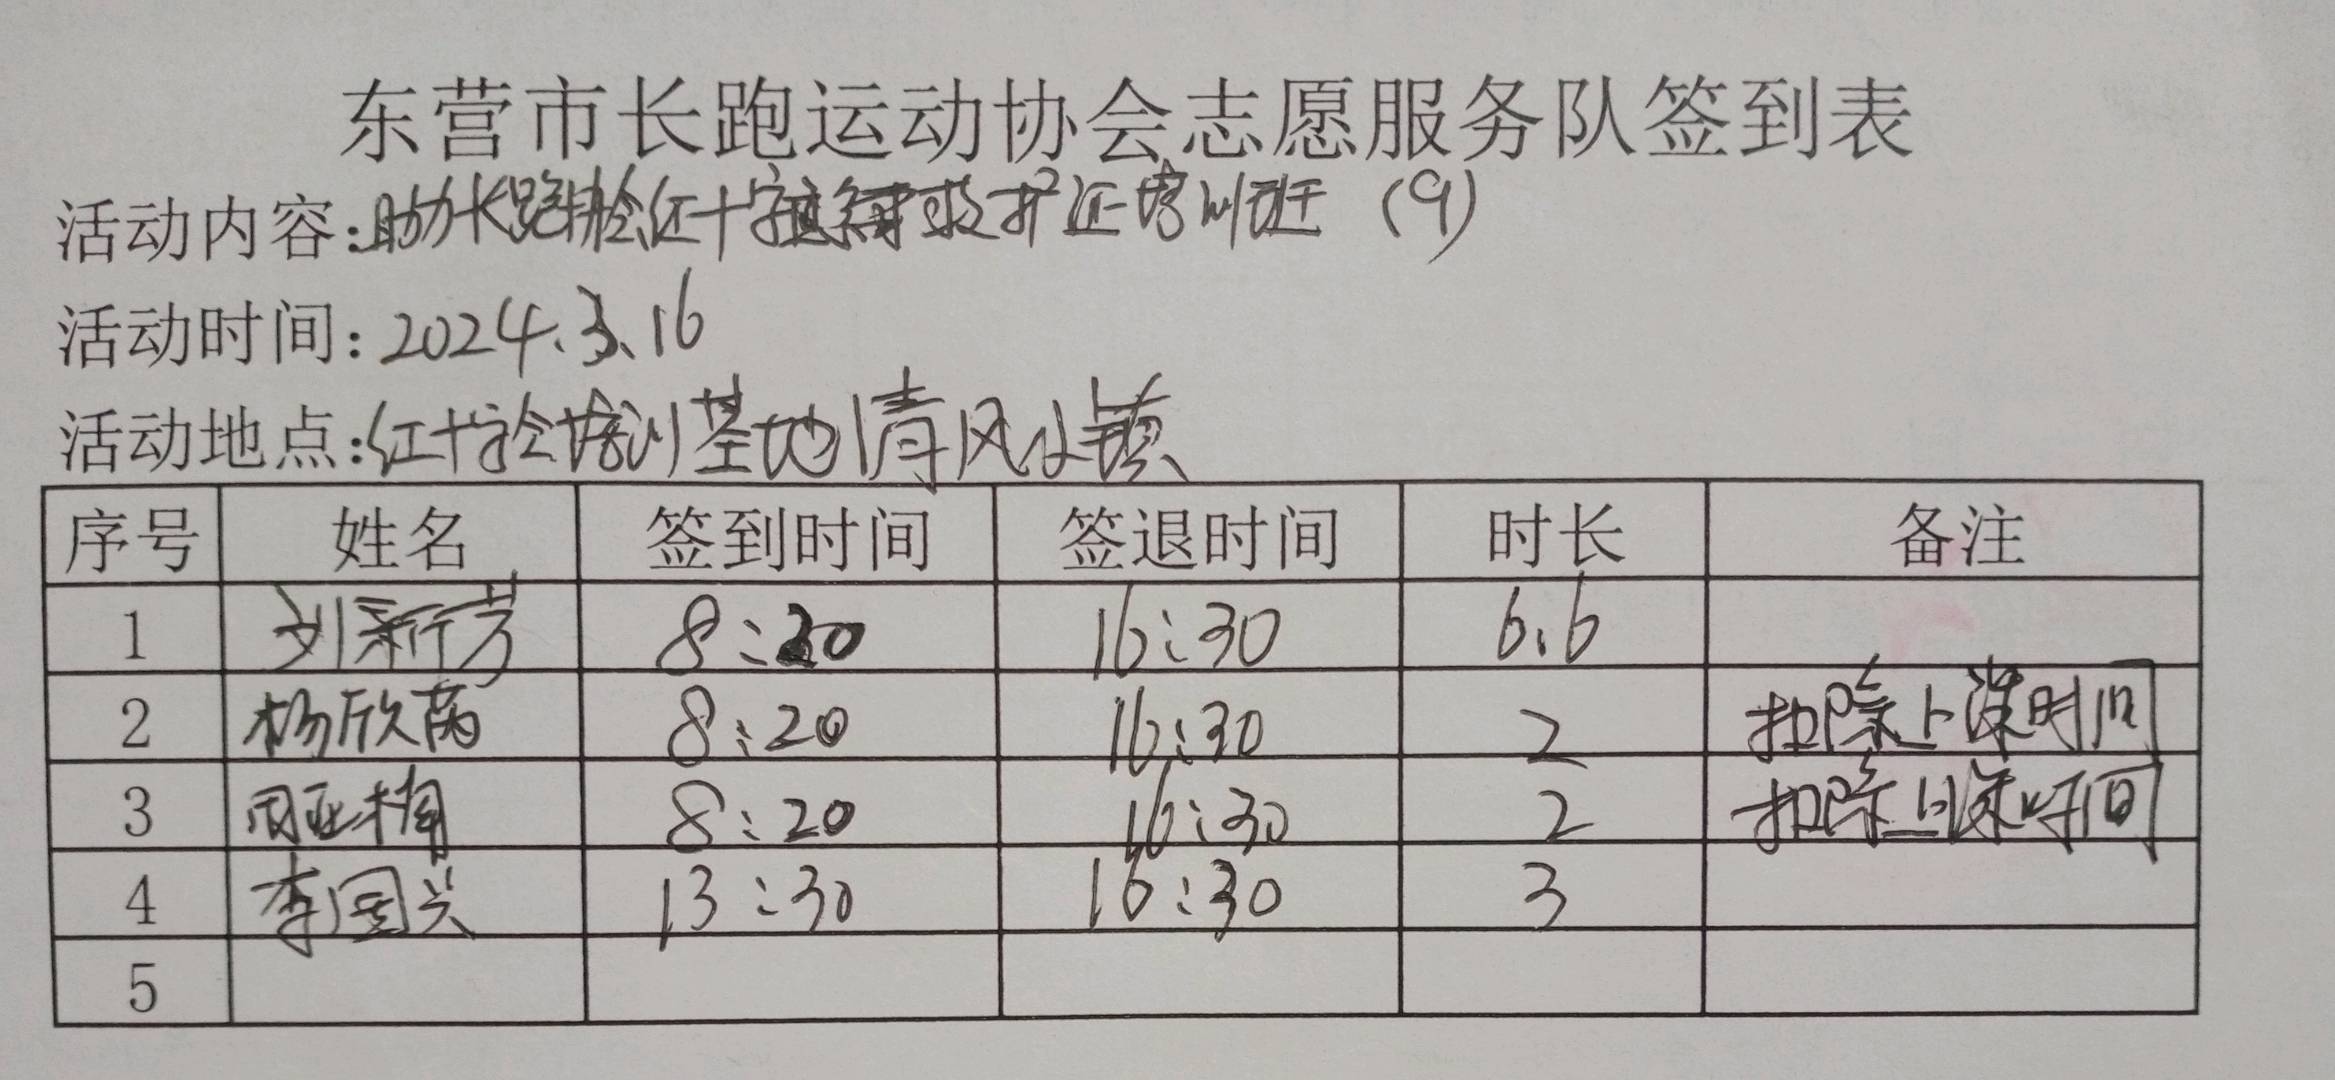 东营市长跑运动协会志愿服务队签到表
活动内容:助力长跑协会红十字应急救护证培训班 (9)
活动时间: 2024.3.16
活动地点:红十字会培训基地清风小镇
序号 姓名 签到时间 签退时间 时长 备注
1 刘新芳 8:20 16:30 6.6
2 杨欣芮 8:20 16:30 2 扣除上课时间
3 周亚楠 8:20 16:30 2 扣除上课时间
4 李国兴 13:30 16:30 3
5